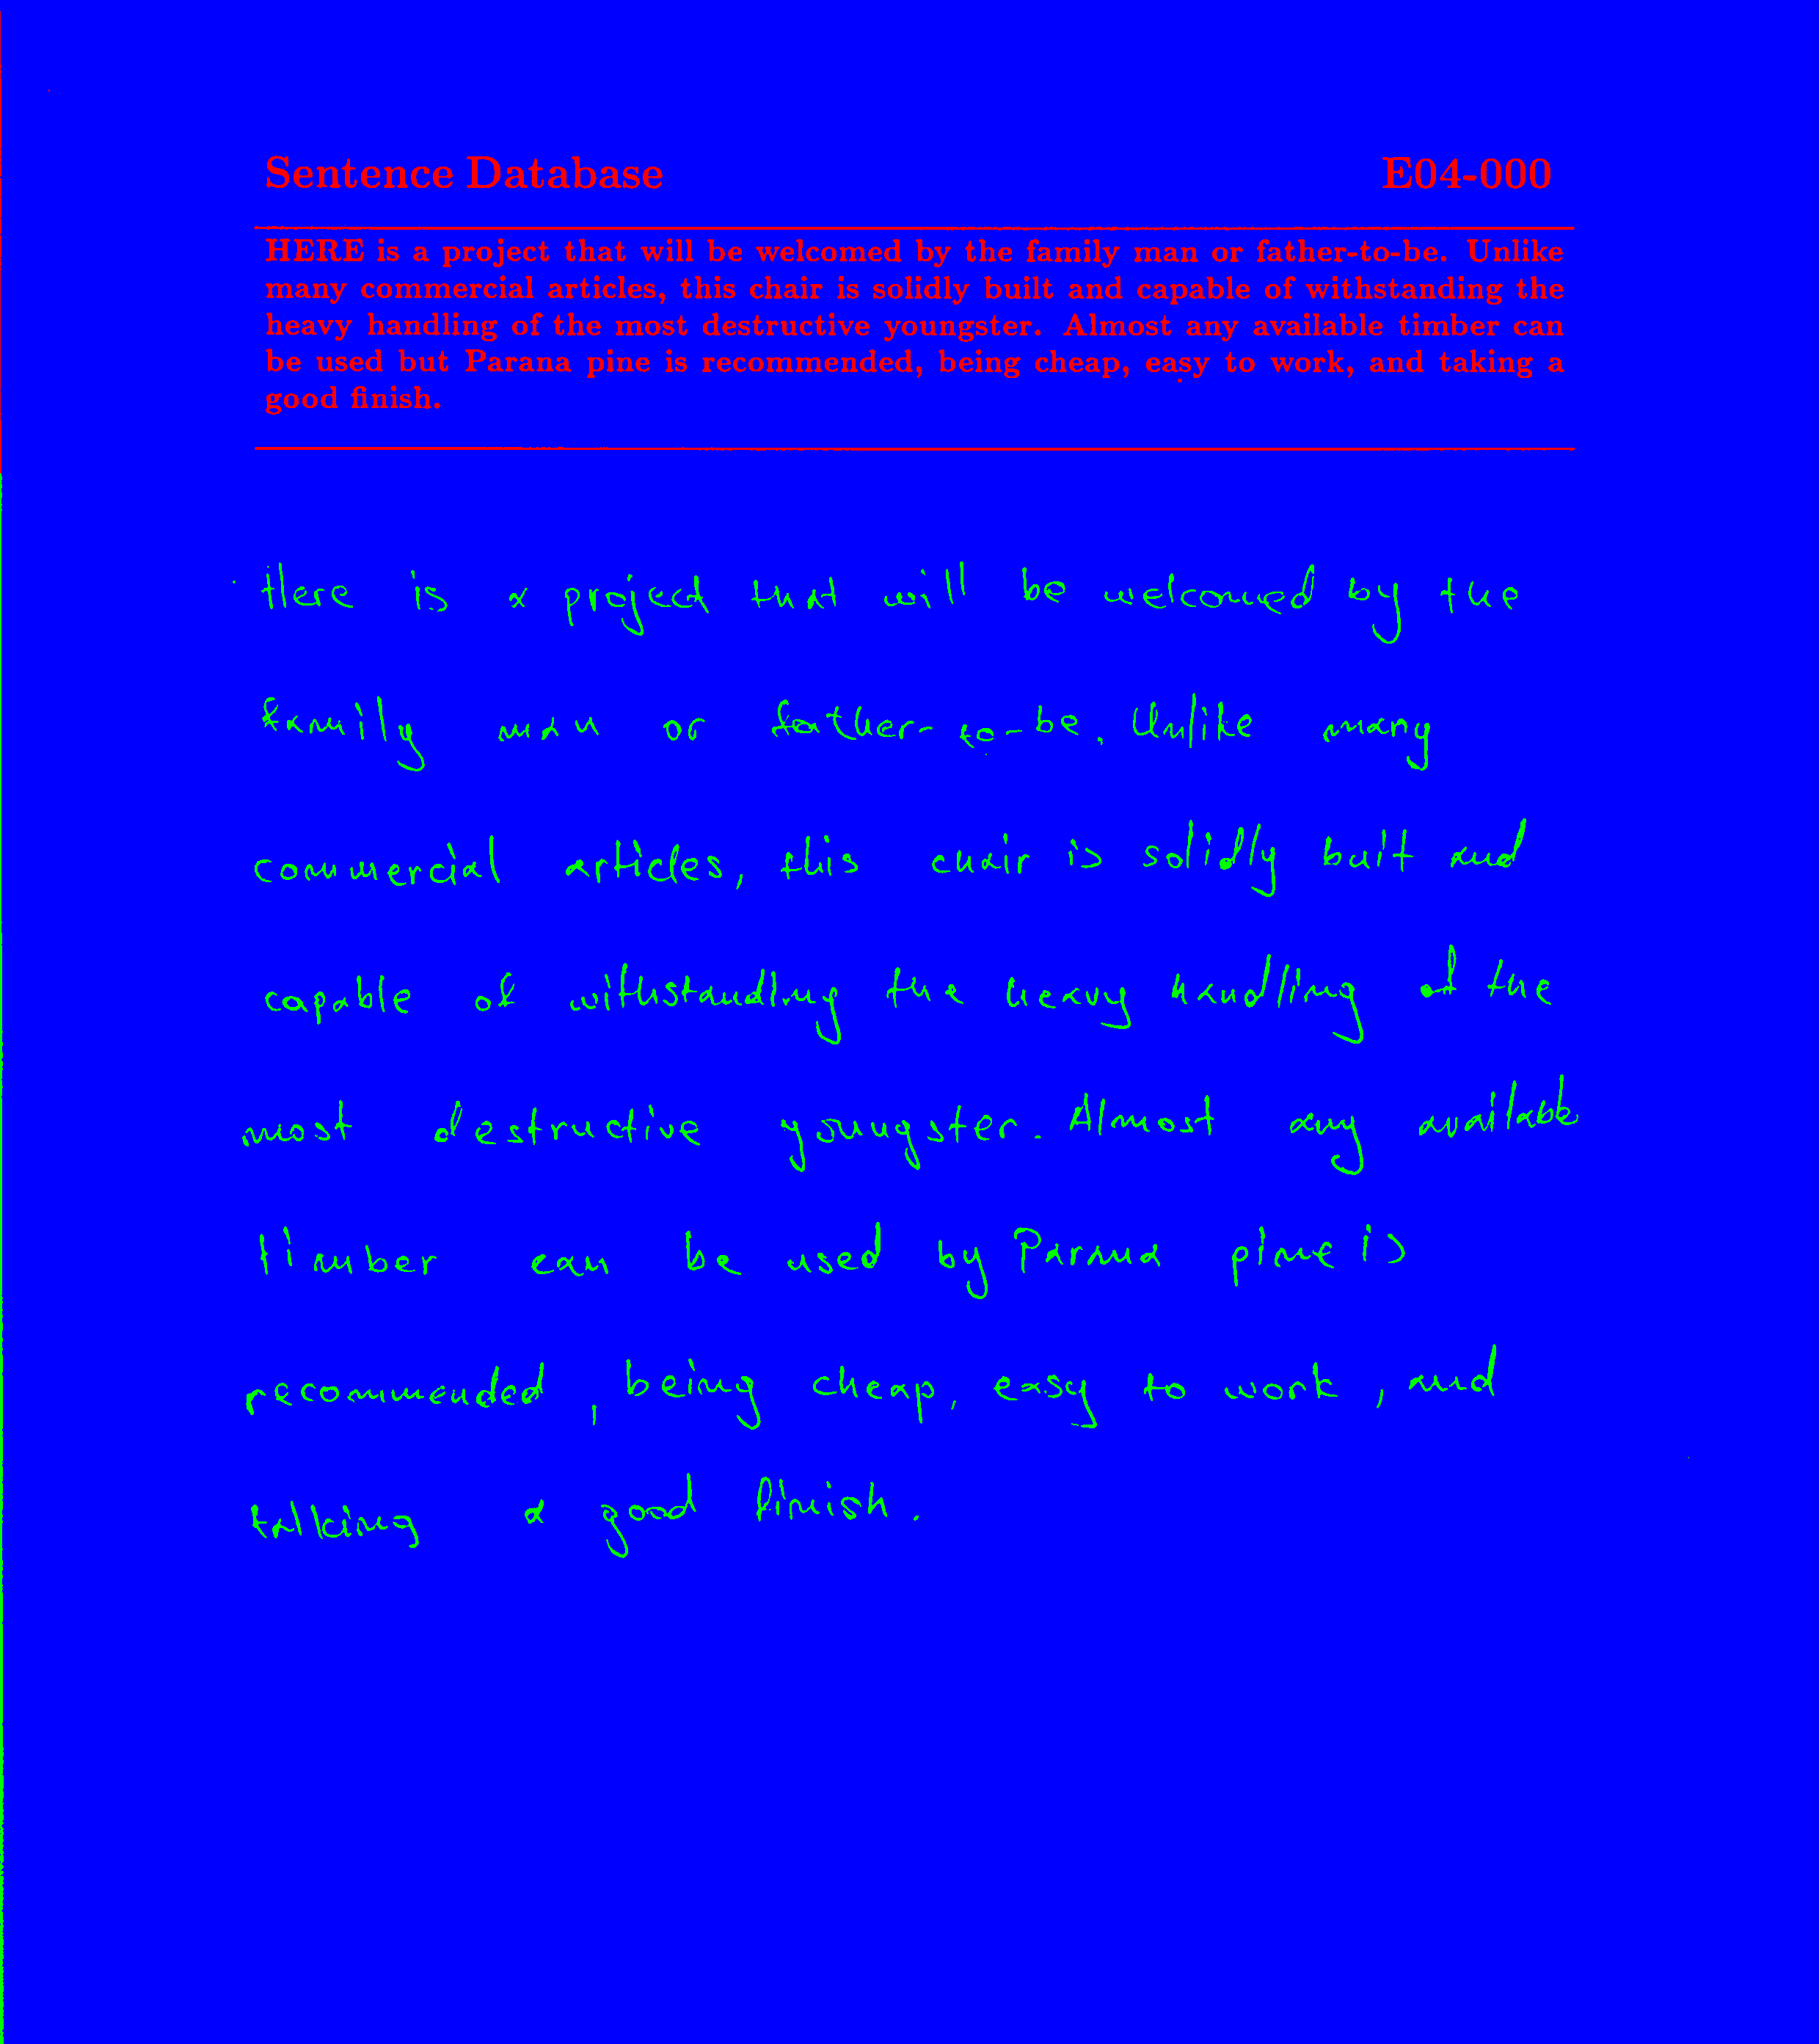 Sentence Database E04-000
HERE is a project that will be welcomed by the family man or father-to-be. Unlike
many commercial articles, this chair is solidly built and capable of withstanding the
heavy handling of the most destructive youngster. Almost any available timber can
be used but Parana pine is recommended, being cheap, easy to work, and taking a
good finish.
Here is a project that will be welcomed by the
family man or father-to-be. Unlike many
commercial articles, this chair is solidly built and
capable of withstanding the heavy handling of the
most destructive youngster. Almost any available
timber can be used by Parana pine is
recommended, being cheap, easy to work, and
talking a good finish.